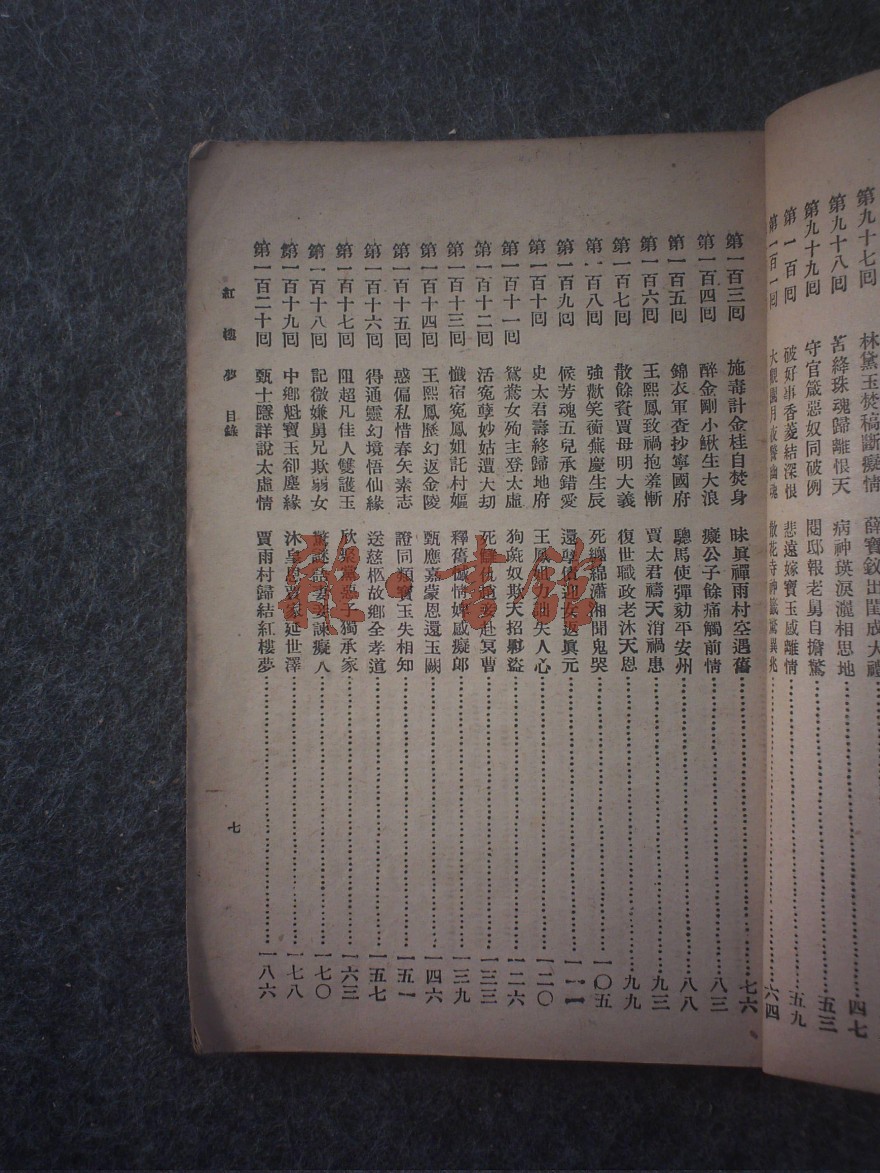 第九十七回 林黛玉焚稿斷癡情 薛寶釵出閨成大禮 四七
第九十八回 苦絳珠魂歸離恨天 病神瑛淚灑相思地 五三
第九十九回 守官箴惡奴同破例 閱邸報老舅自擔驚 五九
第一百回 破好事香菱結深恨 悲遠嫁寶玉感離情 六四
第一百一回 大觀園月夜警幽魂 散花寺神籤驚異兆
第一百三回 施毒計金桂自焚身 昧眞禪雨村空遇舊 七六
第一百四回 醉金剛小鰍生大浪 癡公子餘痛觸前情 八三
第一百五回 錦衣軍查抄寧國府 驄馬使彈劾平安州 八八
第一百六回 王熙鳳致禍抱羞慚 賈太君禱天消禍患 九三
第一百七回 散餘資賈母明大義 復世職政老沐天恩 九九
第一百八回 強歡笑蘅蕪慶生辰 死纏綿瀟湘聞鬼哭 一〇五
第一百九回 候芳魂五兒承錯愛 還孽債迎女返眞元 一一一
第一百十回 史太君壽終歸地府 王鳳姐力詘失人心 一二〇
第一百十一回 鴛鴦女殉主登太虛 狗彘奴欺天招夥盜 一二六
第一百十二回 活寃孽妙姑遭大劫 死讎仇趙妾赴冥曹 一三三
第一百十三回 懺宿寃鳳姐託村嫗 釋舊憾情婢感癡郎 一三九
第一百十四回 王熙鳳歷幻返金陵 甄應嘉蒙恩還玉闕 一四六
第一百十五回 惑偏私惜春矢素志 證同類寶玉失相知 一五一
第一百十六回 得通靈幻境悟仙緣 送慈柩故鄉全孝道 一五七
第一百十七回 阻超凡佳人雙護玉 欣聚黨惡子獨承家 一六三
第一百十八回 記微嫌舅兄欺弱女 驚謎語妻妾諫癡人 一七〇
第一百十九回 中鄉魁寶玉卻塵緣 沐皇恩賈家延世澤 一七八
第一百二十回 甄士隱詳說太虛情 賈雨村歸結紅樓夢 一八六
紅樓夢 目錄 七
雅·書館